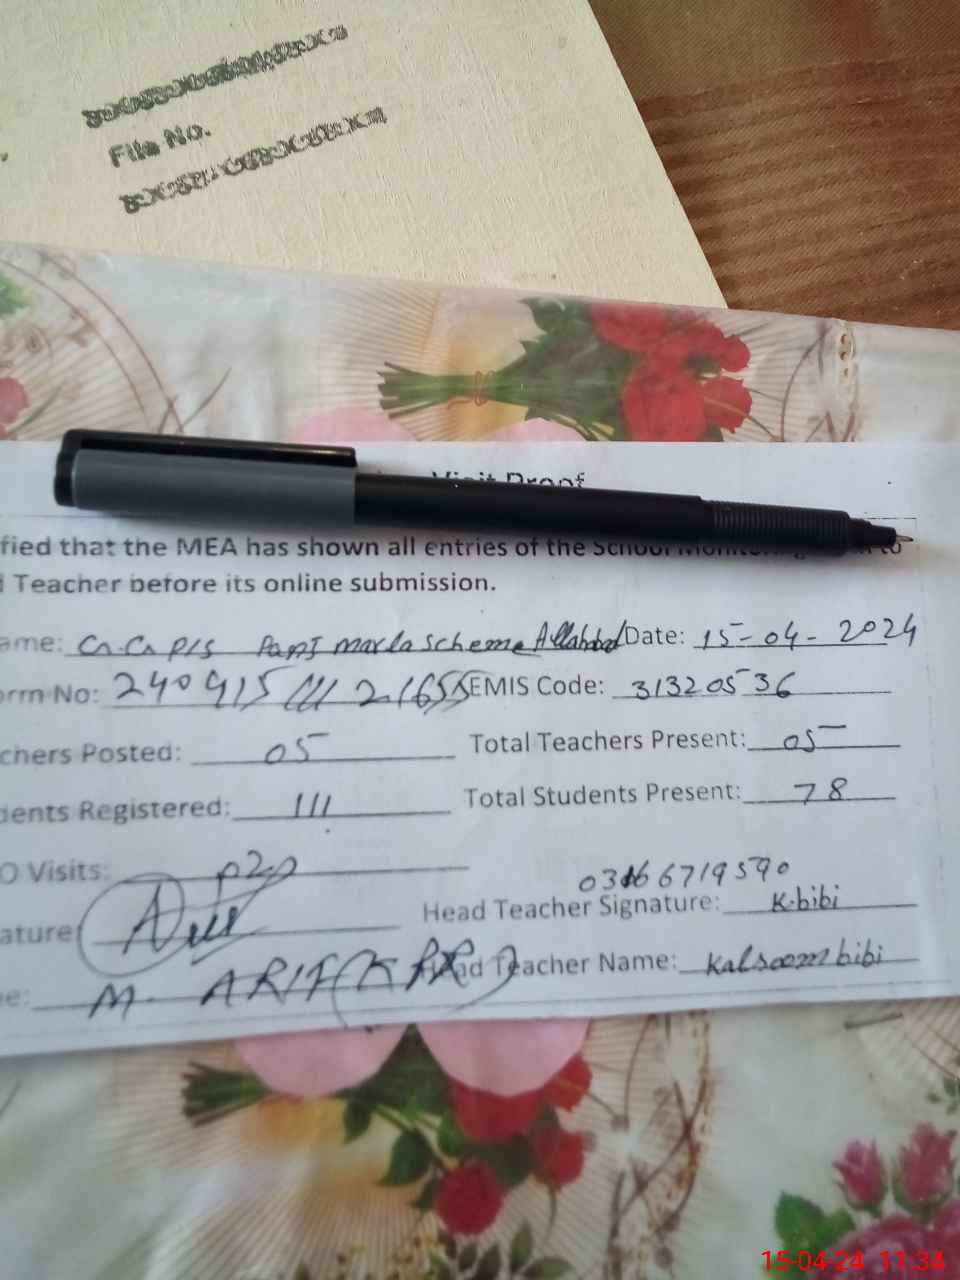 File No.
Visit Proof
fied that the MEA has shown all entries of the School
Teacher before its online submission.
ame: G.G P/S Panj marla scheme Allahabad Date: 15-04-2024
orm No: EMIS Code: 31320536
chers Posted: 05 Total Teachers Present: 05
dents Registered: 111 Total Students Present: 78
O Visits:
03166719590
ature Head Teacher Signature: K.bibi
e: M. ARIF Head Teacher Name: Kalsoom bibi
15-04-24 11:34